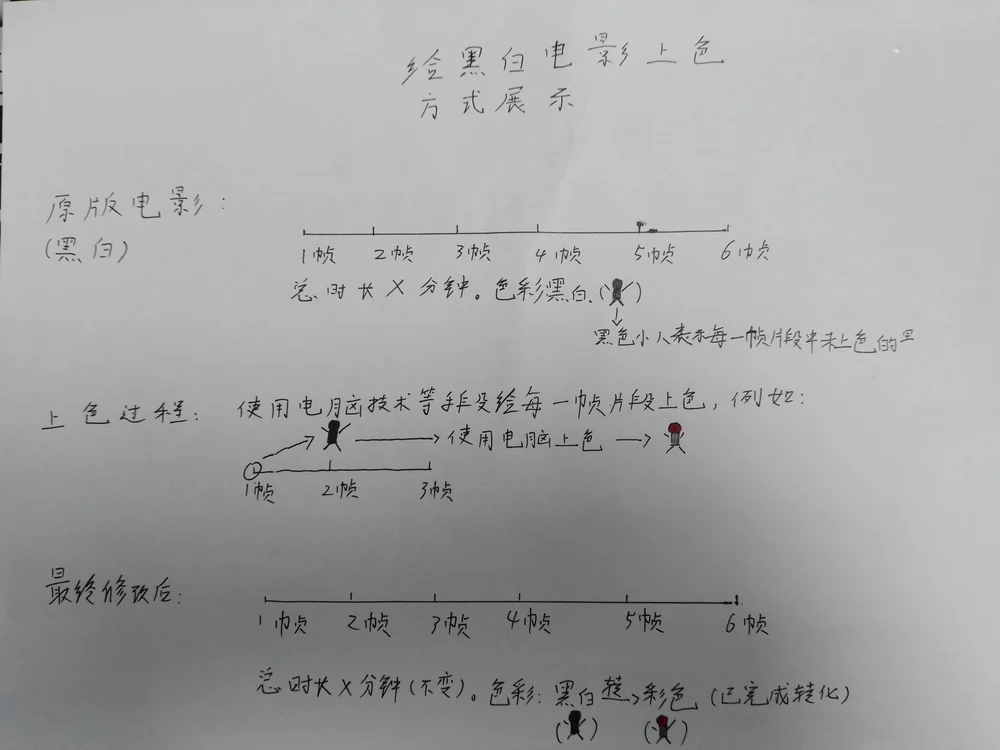 给黑白电影上色
方式展示
原版电影:
(黑白)
1帧 2帧 3帧 4帧 5帧 6帧
总时长X分钟。色彩黑白.( )
黑色小人表示每一帧片段中未上色的
上色过程: 使用电脑技术等手段给每一帧片段上色,例如:
使用电脑上色
1帧 2帧 3帧
最终修改后:
1帧 2帧 3帧 4帧 5帧 6帧
总时长X分钟(不变)。色彩:黑白 彩色(已完成转化)
( ) ( )